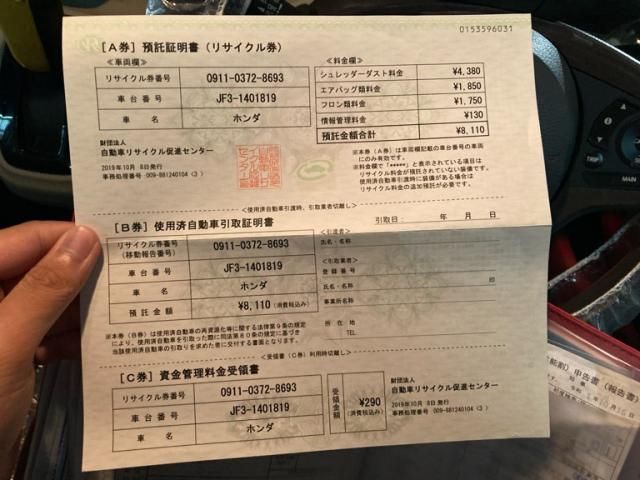 0153596031
[A券] 預託証明書(リサイクル券)
≪車両欄≫
リサイクル券番号 0911-0372-8693
車台番号 JF3-1401819
車名 ホンダ
≪料金欄≫
シュレッダーダスト料金 ¥4,380
エアバッグ類料金 ¥1,850
フロン類料金 ¥1,750
情報管理料金 ¥130
預託金額合計 ¥8,110
財団法人
自動車リサイクル促進センター
2019年10月 8日発行
事務処理番号 009-881240104 〈3〉
※本券(A券)は車両欄記載の車台番号の車両
にのみ有効です。
※料金欄で「*****」と表示されている項目は
リサイクル料金が預託されていない装備です。
使用済自動車引渡時に装備がある場合は
リサイクル料金の追加預託が必要です。
<使用済自動車引渡時、引取業者切離し>
[B券] 使用済自動車引取証明書
引取日: 年 月 日
リサイクル券番号
(移動報告番号) 0911-0372-8693
車台番号 JF3-1401819
車名 ホンダ
預託金額 ¥8,110 (消費税込み)
≪引渡者≫
氏名・名称
≪引取業者≫
登録番号
氏名・名称 印
事業所名称
所在地
TEL
※本券(B券)は使用済自動車の再資源化等に関する法律第9条の規定
により、使用済自動車を引取った際に同法第80条の規定に基づき
当該使用済自動車の引取りを求めた者に交付する書面となります。
<受領書(C券)利用時切離し>
[C券] 資金管理料金受領書
リサイクル券番号 0911-0372-8693
車台番号 JF3-1401819
車名 ホンダ
受領金額 ¥290
(消費税込み)
財団法人
自動車リサイクル促進センター
2019年10月 8日発行
事務処理番号 009-881240104 〈3〉
TRIP
MAIN
申告書(報告書)